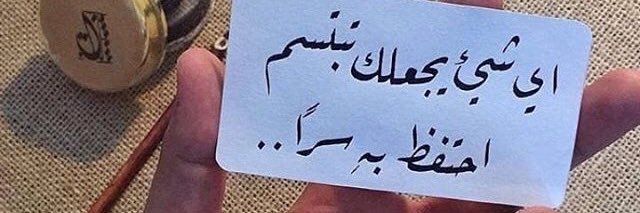 اي شيئ يجعلك تبتسم
احتفظ بهِ سراً ..